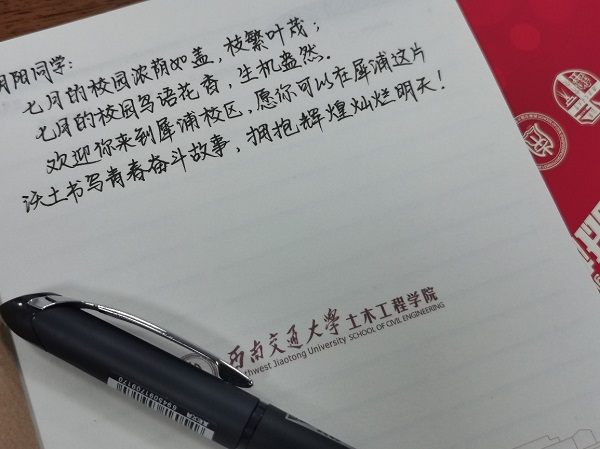 阳同学：
七月的校园浓荫如盖，枝繁叶茂；
七月的校园鸟语花香，生机盎然．
欢迎你来到犀浦校区，愿你可以在犀浦这片
沃土书写青春奋斗故事，拥抱辉煌灿烂明天！
西南交通大学 土木工程学院
Southwest Jiaotong University SCHOOL OF CIVIL ENGINEERING